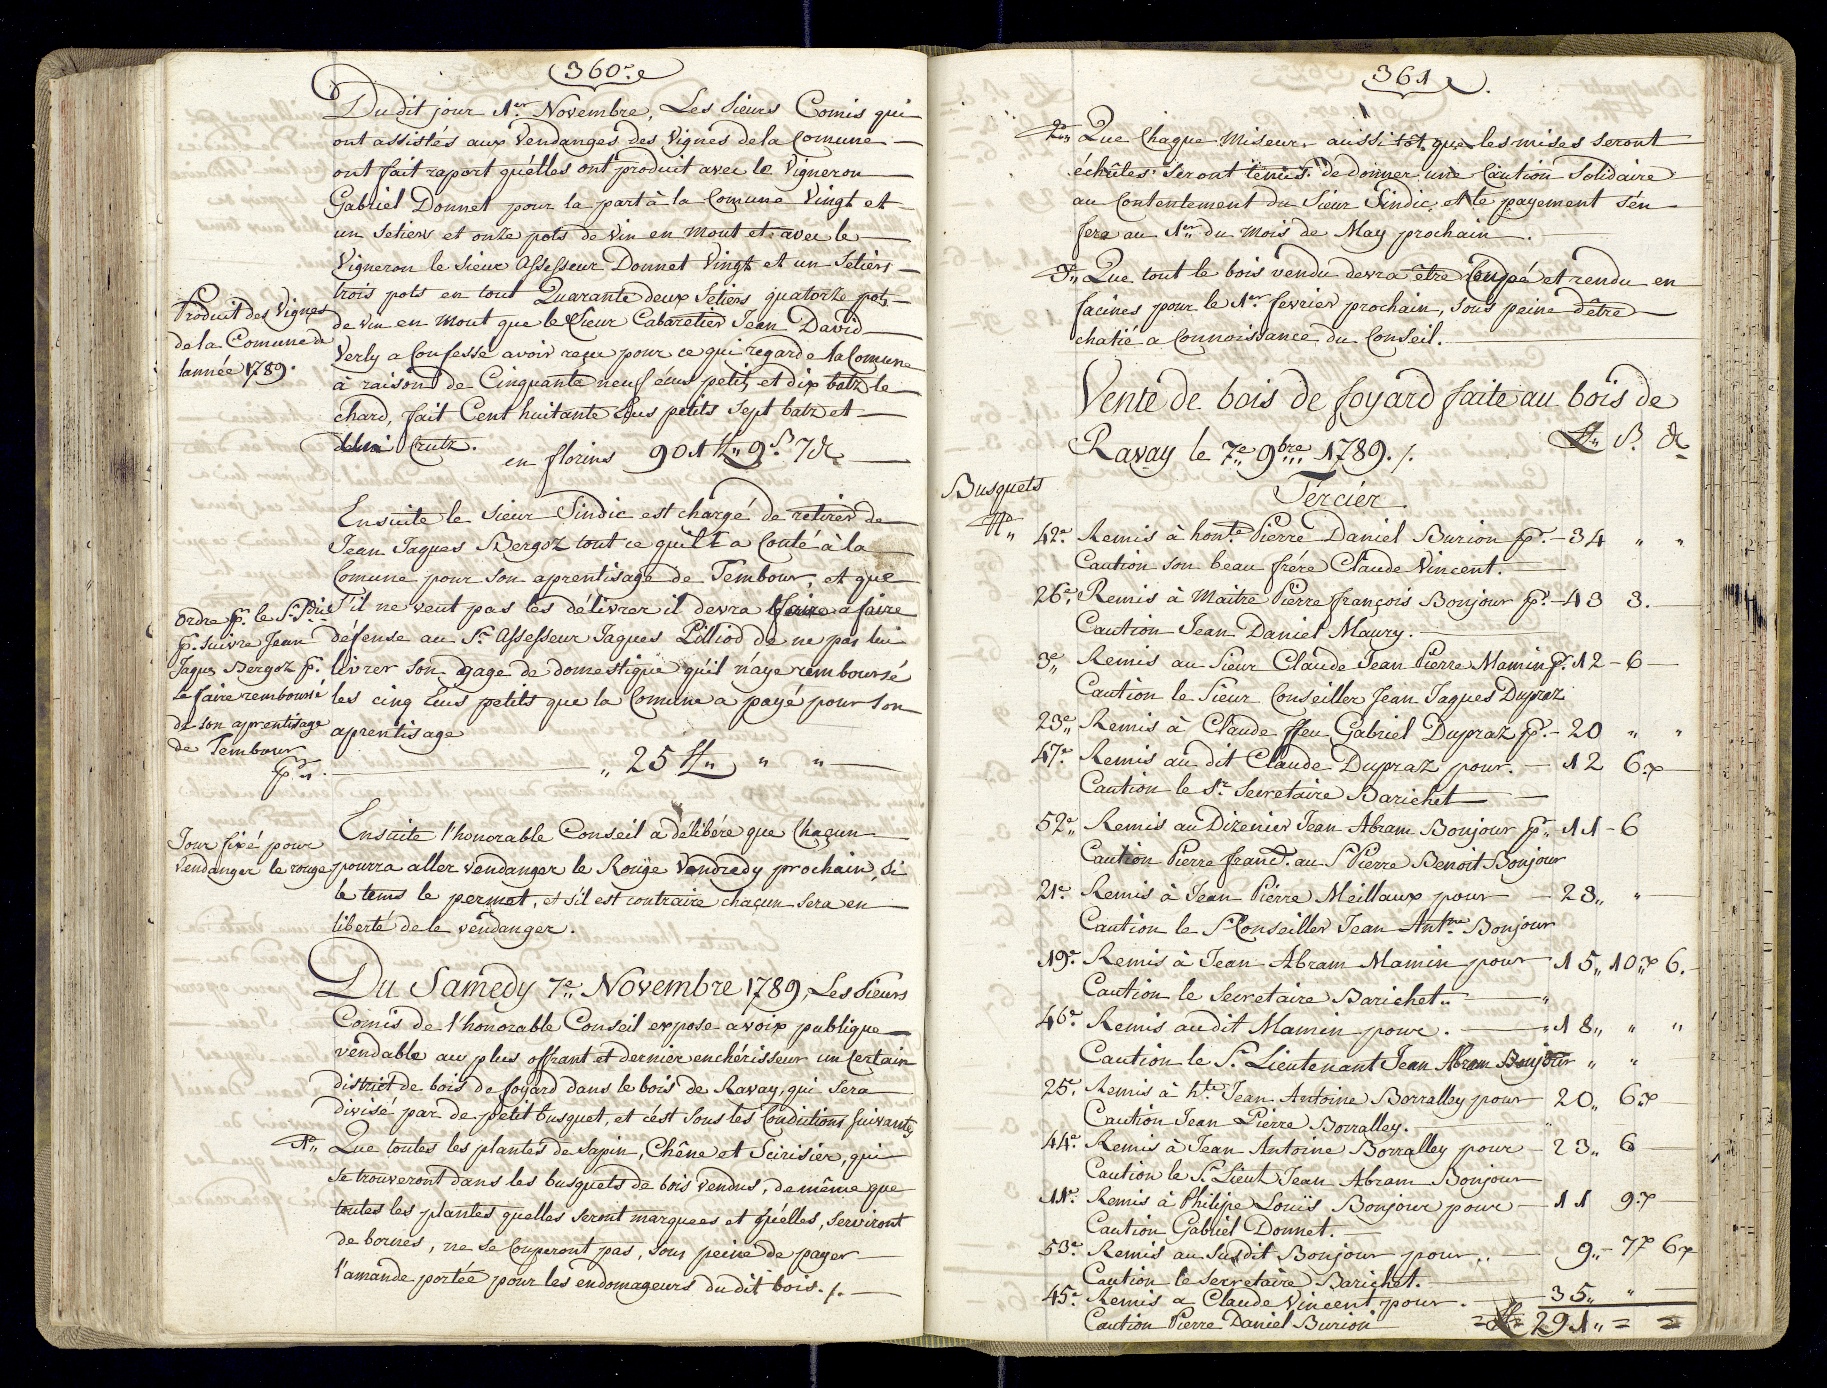 360.e
Du dit jour 1.er Novembre, Les Sieurs Comis qui
ont assistés aux Vendanges des Vignes de la Comune
ont fait raport qu'elles ont produit avec le Vigneron
Gabriel Donnet pour la part à la Comune Vingt et
un Setiers et onze pots de Vin en Mout et avec le
Vigneron le Sieur Assesseur Donnet Vingt et un Setiers
trois pots en tout Quarante deux Setiers quatorze pots
Produit des Vignes
de la Comune de
lannée 1789.
de Vin en Mout que le Sieur Cabaretier Jean David
Verly a Confessé avoir reçu pour ce qui regarde la Comune
à raison de Cinquante neuf écus petits et dix batz le
chard, fait Cent huitante Ecus petits Sept batz et
demi Crutz.
en florins 901 ff„ 9 ß. 7 d
Ensuite le Sieur Sindic est chargé de retirer de
Jean Jaques Bergoz tout ce qu'il a Couté à la
Comune pour Son aprentisage de Tembour, et que
S'il ne veut pas les délivrer il devra faire a faire
ordre p.r le S.r Sindic
p. Suivre Jean
Jaques Bergoz p.
le faire remboursé
de son aprentisage
de Tembour
défense au S.r Assesseur Jaques Pilliod de ne pas lui
livrer Son gage de domestique qu'il n'aye remboursé
les cinq Ecus petits que la Comune a payé pour Son
aprentisage
„ 25 ff„ „ „
Ensuite l'honorable Conseil a délibéré que Chaçun
Jour fixé pour
Vendanger le rouge
pourra aller vendanger le Roüge Vendredy prochain, Si
le tems le permet, et s'il est contraire chaçun sera en
liberté de le vendanger.
Du Samedy 7.e Novembre 1789, Les Sieurs
Comis de l'honorable Conseil expose a voix publique
vendable au plus offrant et dernier enchérisseur un Certain
district de bois de foyard dans le bois de Ravay, qui Sera
divisé par de petit busquet, et c'est Sous les Conditions Suivantes
1.o Que toutes les plantes de Sapin, Chêne et Seirisier, qui
Se trouveront dans les busquets de bois Vendus, de même que
toutes les plantes quelles Seront marquees et qu'elles, Serviront
de bornes, ne Se Couperont pas, Sous peine de payer
l'amande portée pour les endomageurs du dit bois. /.
361.
2.o Que Chaque Miseur, aussi tôt que les mises Seront
échûtes Seront tenus de donner une Caution Solidaire
au Contentement du Sieur Sindic, et le payement S'en
fera au 1.er du Mois de May prochain.
3.o Que tout le bois vendu devra être Coupé et rendu en
facines pour le 1.er fevrier prochain, Sous peine d'être
chatié a Connoissance du Conseil.
Vente de bois de foyard faite au bois de
Ravay le 7.e 9bre 1789. /. ff„ ß. d
Busquets
N.o
Tércier.
42.e Remis à hon.te Pierre Daniel Burion p.r 34 „ „
Caution Son beau frére Claude Vincent.
26.e Remis à Maitre Pierre françois Bonjour p.r 43 3.
Caution Jean Daniel Maury.
3.e Remis au Sieur Claude Jean Pierre Mamin p.r 12 - 6
Caution le Sieur Conseiller Jean Jaques Dupraz
23.e Remis à Claude ffeu Gabriel Dupraz p.r 20 „ „
47.e Remis au dit Claude Dupraz pour. 12 6.
Caution le S.r Secretaire Barichet
52.e Remis au Dizenier Jean Abram Bonjour p.r 11 - 6
Caution Pierre franc. au S.r Pierre Benoit Bonjour
21.e Remis à Jean Pierre Meillaux pour 28„ „
Caution le S.r Conseiller Jean Ant.ne Bonjour
19.e Remis à Jean Abram Mamin pour 15„ 10„ 6.
Caution le Secretaire Barichet.. „
46.e Remis audit Mamin pour. 18„ „ „
Caution le S.r Lieutenant Jean Abram Bonjour „ „
25.e Remis à h.te Jean Antoine Borralley pour 20„ 6
Caution Jean Pierre Borralley.
44.e Remis à Jean Antoine Borralley pour 23„ 6
Caution le S.r Lieut. Jean Abram Bonjour
11.e Remis à Philipe Louis Bonjour pour 11 9
Caution Gabriel Donnet.
53.e Remis au Susdit Bonjour pour.. 9„ 7 6
Caution le Secretaire Barichet.
45.e Remis a Claude Vincent pour. 35„ „
Caution Pierre Daniel Burion = ff„ 291„ = =